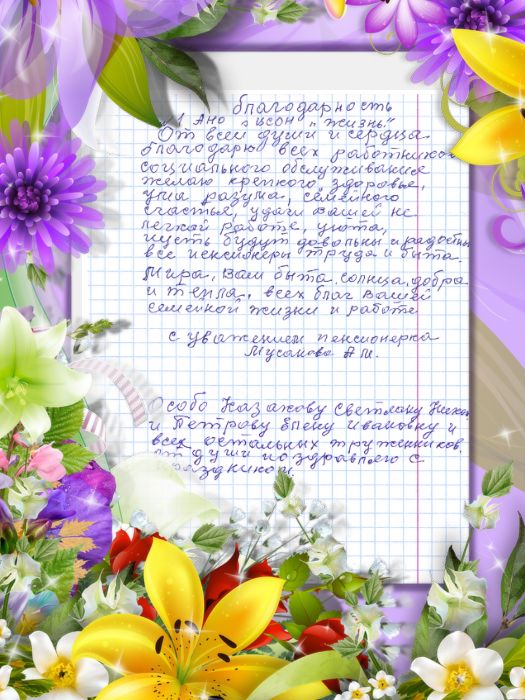 благодарность
1 Ано „ ЦСОН „ Жизнь."
От всей души и сердца
благодарю всех работников
социального обслуживание
желаю крепкого здоровье,
ума разума, семейного
счастья, удачи вашей не
легкой работе, уюта,
пусть будут довольны и радостны
все пенсионери труда и быта.
Мира, Вам быта, солнца, добра
и тепла, всех благ вашей
семейной жизни и работе
с уважением пенсионерка
Мусакова А М.
Особо Казакову Светлану
и Петрову Елену Ивановну и
всех остальных тружеников.
от души поздравляю с
праздником